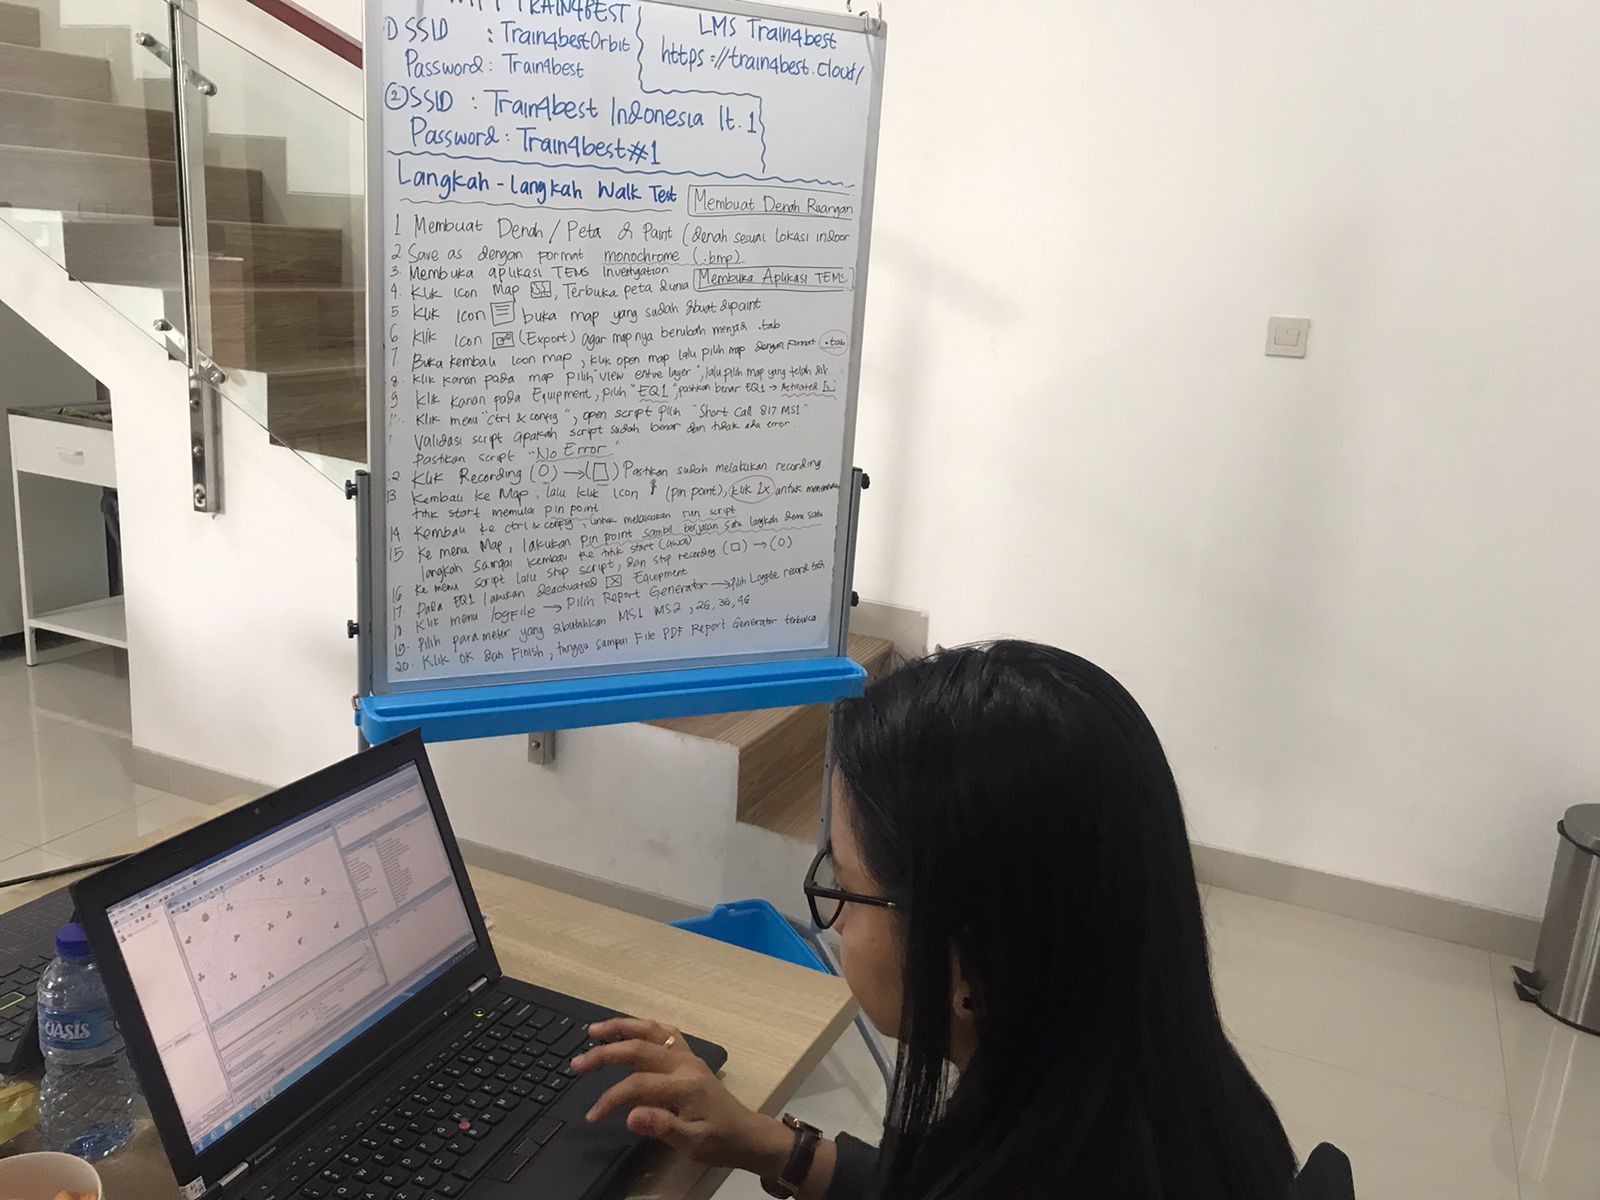 WIFI TRAIN4BEST
1) SSID : Train4bestOrbit
Password : Train4best
LMS Train4best
https://train4best.cloud/
2) SSID : Train4best Indonesia lt. 1
Password : Train4best#1
Langkah-langkah Walk Test
Membuat Denah Ruangan
1. Membuat Denah / Peta di Paint (denah sesuai lokasi indoor
2 Save as dengan format monochrome (.bmp)
3. Membuka aplikasi TEMS Investigation
Membuka Aplikasi TEMS
4. Klik icon Map , Terbuka peta dunia
5 Klik Icon buka map yang sudah dibuat dipaint
6 Klik icon (Export) agar mapnya berubah menjadi .tab
7. Buka kembali icon map, klik open map lalu pilih map dengan format .tab
8. Klik kanan pada map pilih "view entire layer", lalu pilih map yang telah
9. Klik kanan pada Equipment, pilih "EQ1", pastikan benar EQ1 → Activated
Klik menu "ctrl & config", open script pilih "Short Call 817 MS1"
Validasi script apakah script sudah benar dan tidak ada error.
Pastikan script "No Error"
.2 Klik Recording (O) → (□) Pastikan sudah melakukan recording.
13. Kembali ke Map, lalu klik icon (pin point), klik 1x untuk
titik start memulai pin point.
14. Kembali ke ctrl & config, untuk melakukan run script
15. Ke menu Map, lakukan pin point sambil berjalan satu langkah demi satu
langkah sampai kembali ke titik start (awal)
16. Ke menu script lalu stop script, dan stop recording (□) → (O)
17. Pada EQ1 lakukan deactivated Equipment
18. Klik menu logfile → Pilih Report Generator → pilih Logfile record
19. Pilih parameter yang dibutuhkan MS1 MS2, 2G, 3G, 4G
20. Klik OK dan Finish, tunggu sampai File PDF Report Generator terbuka
OASIS